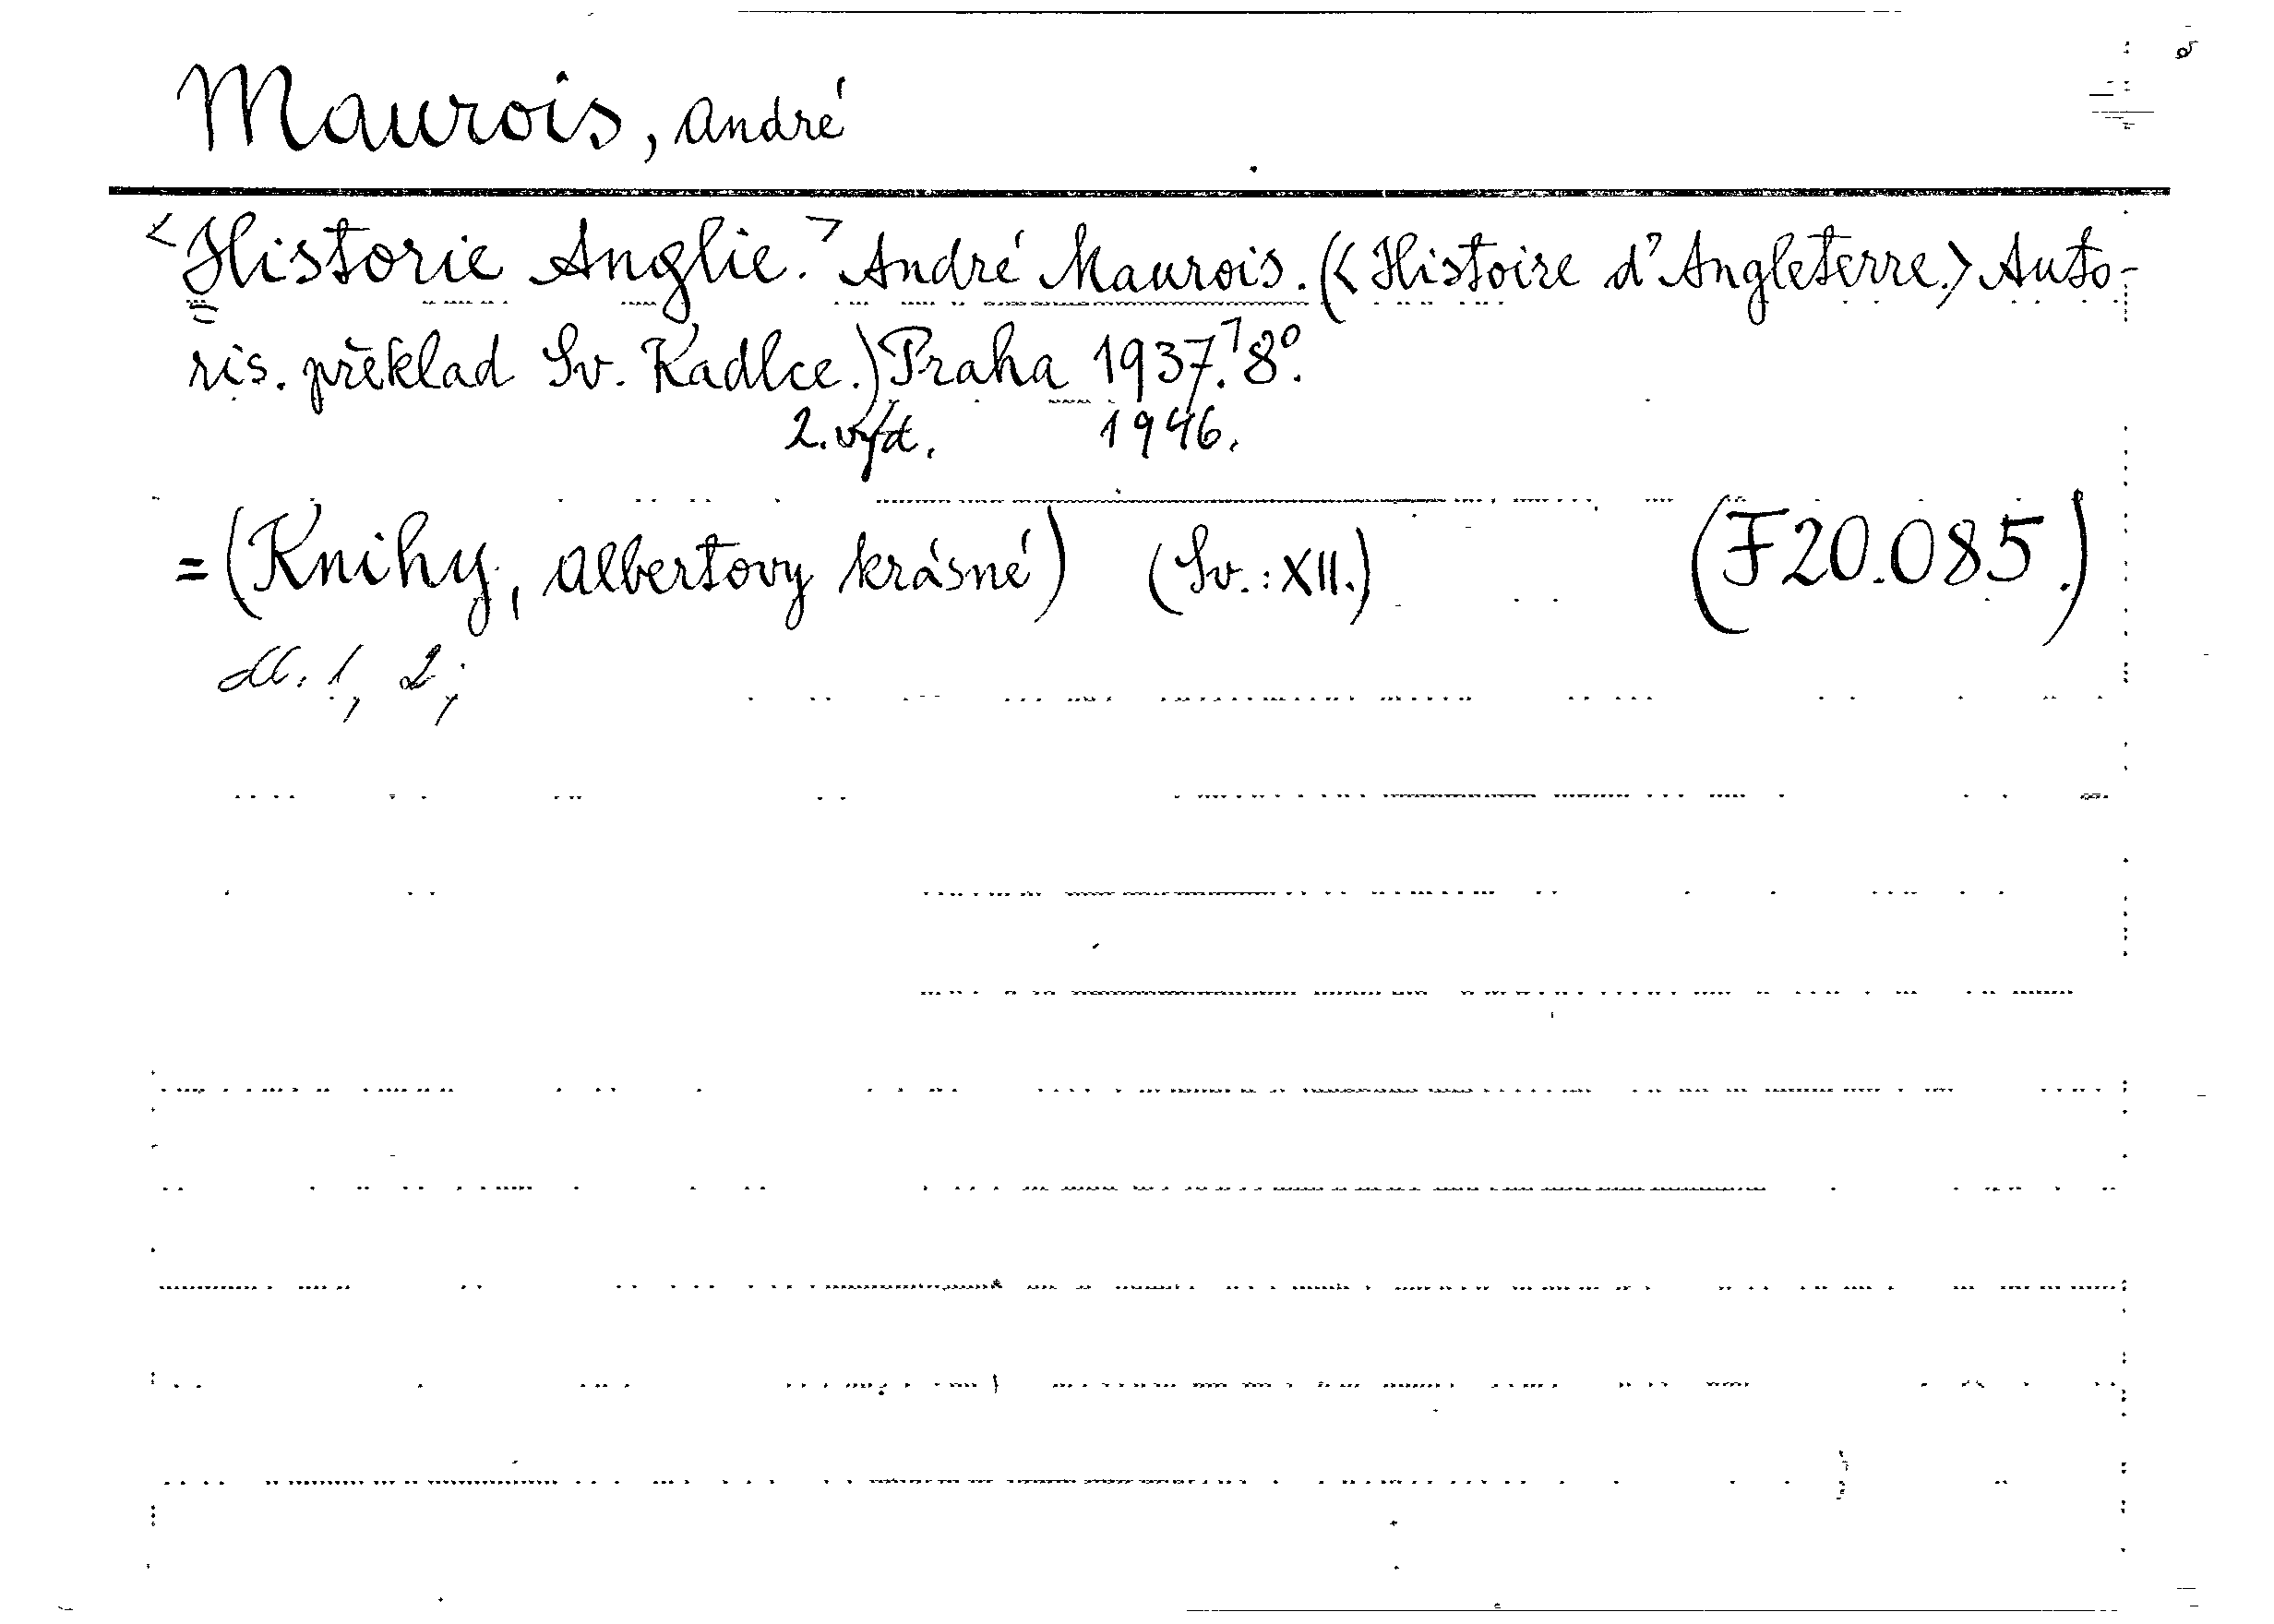 Maurois, André
<Historie Anglie.> André Maurois. (<Histoire d'Angleterre.> Auto-
ris. překlad Sv. Kadlce.) Praha 1937. 8º.
2. vyd. 1946.
= (Knihy, Albertovy krásné) (Sv.: XII.) (F20.085.)
dl. 1, 2;